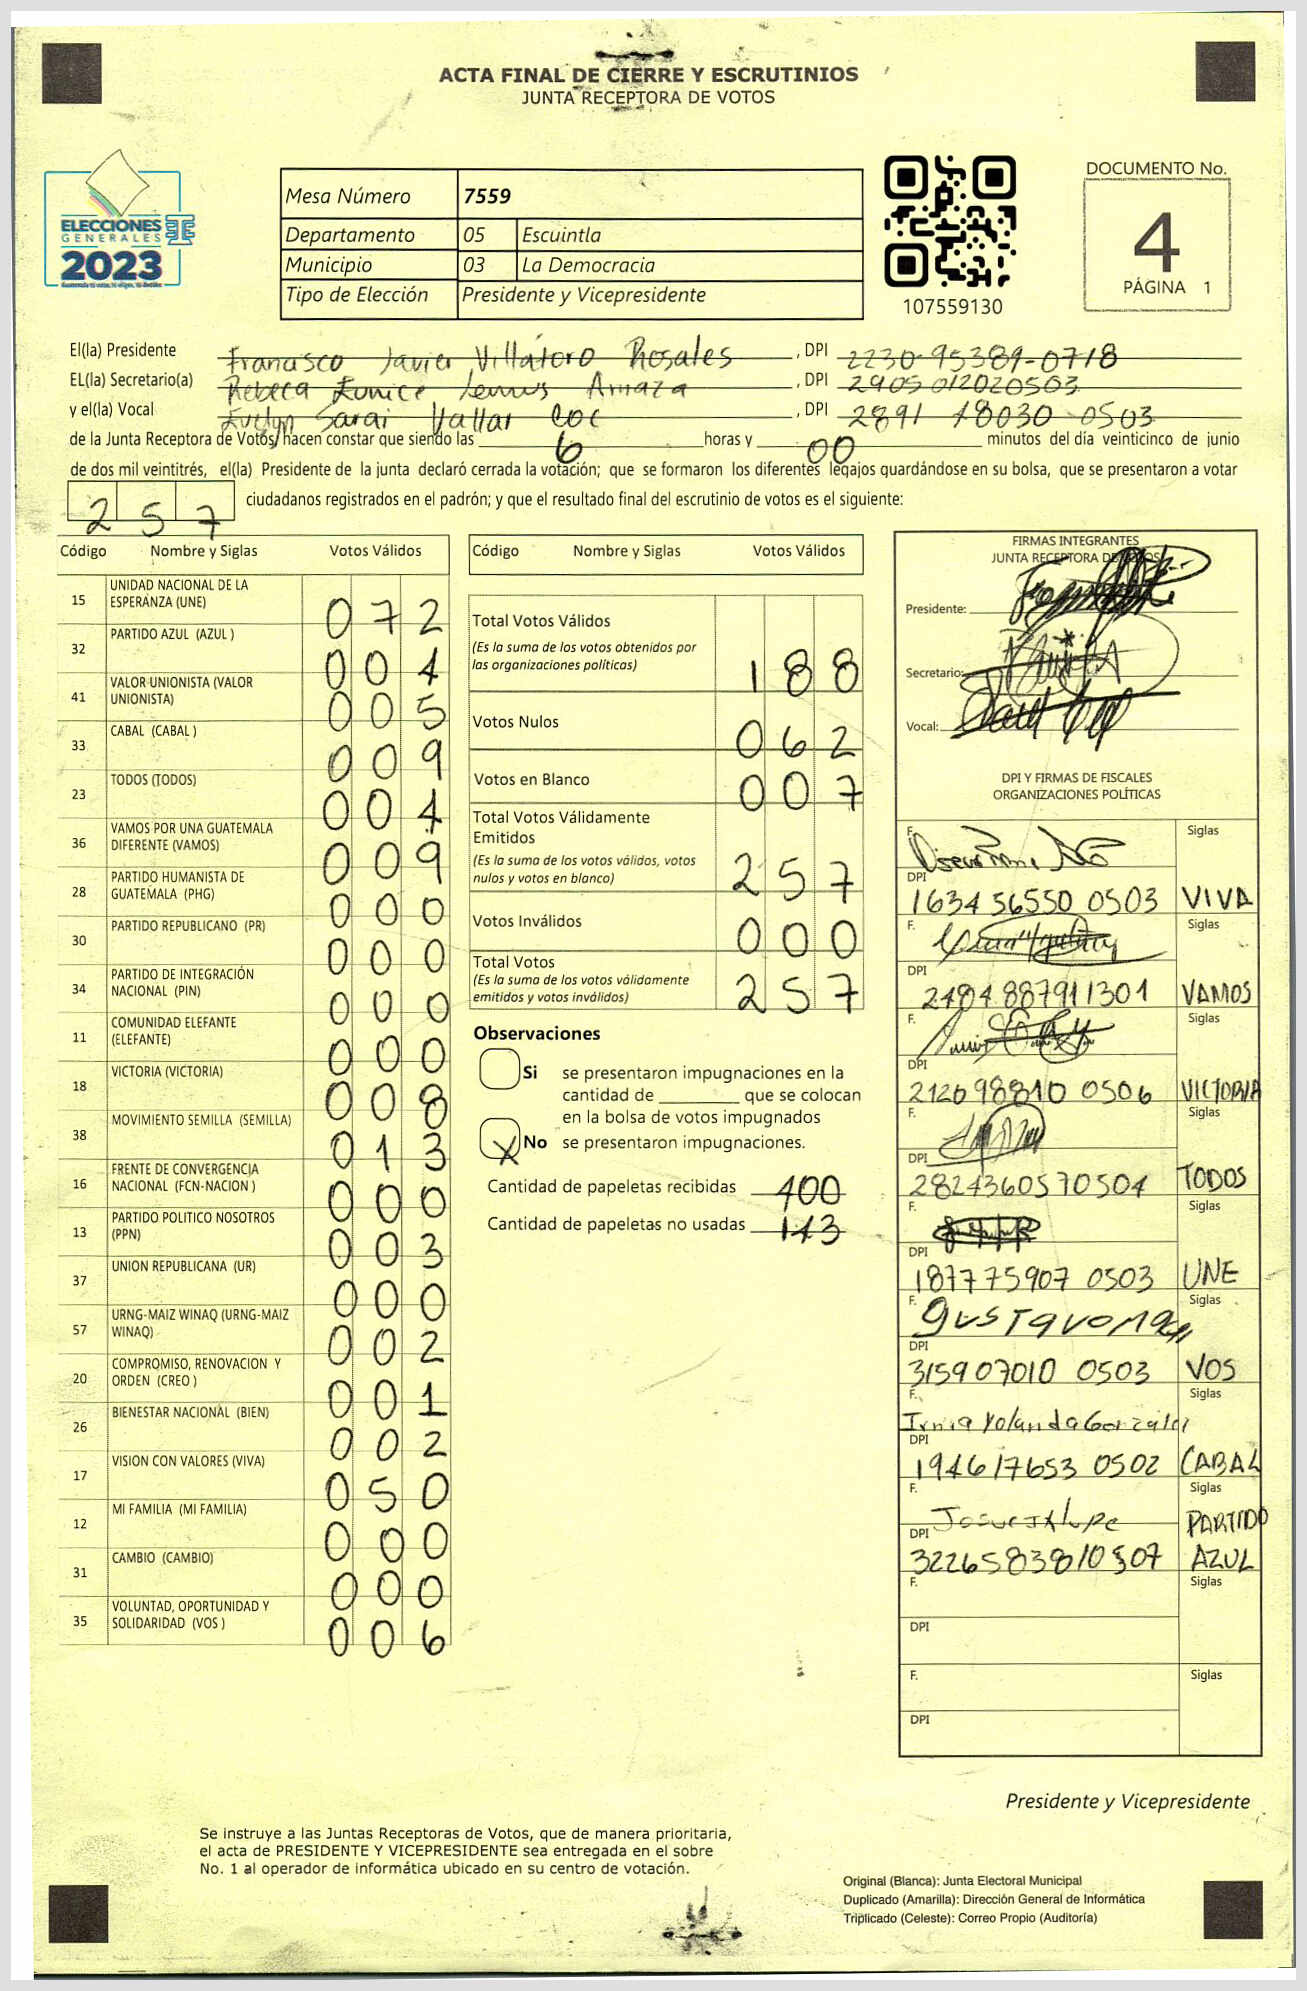 ACTA FINAL DE CIERRE Y ESCRUTINIOS
JUNTA RECEPTORA DE VOTOS
ELECCIONES
GENERALES
2023
Mesa Número 7559
Departamento 05 Escuintla
Municipio 03 La Democracia
Tipo de Elección Presidente y Vicepresidente
107559130
DOCUMENTO No.
4
PÁGINA 1
El(la) Presidente Francisco Javier Villatoro Rosales, DPI 2230-95389-0718
EL(la) Secretario(a) Rebeca Eunice Lemus Amaza, DPI 2905 012020503
y el(la) Vocal Evelyn Sarai Vallar Coc, DPI 2891 18030 0503
de la Junta Receptora de Votos, hacen constar que siendo las 6 horas y 00 minutos del día veinticinco de junio
de dos mil veintitrés, el(la) Presidente de la junta declaró cerrada la votación; que se formaron los diferentes legajos guardándose en su bolsa, que se presentaron a votar
257 ciudadanos registrados en el padrón; y que el resultado final del escrutinio de votos es el siguiente:
Código Nombre y Siglas Votos Válidos
15 UNIDAD NACIONAL DE LA ESPERANZA (UNE) 072
32 PARTIDO AZUL (AZUL ) 004
41 VALOR UNIONISTA (VALOR UNIONISTA) 005
33 CABAL (CABAL ) 009
23 TODOS (TODOS) 004
36 VAMOS POR UNA GUATEMALA DIFERENTE (VAMOS) 009
28 PARTIDO HUMANISTA DE GUATEMALA (PHG) 000
30 PARTIDO REPUBLICANO (PR) 000
34 PARTIDO DE INTEGRACIÓN NACIONAL (PIN) 000
11 COMUNIDAD ELEFANTE (ELEFANTE) 000
18 VICTORIA (VICTORIA) 008
38 MOVIMIENTO SEMILLA (SEMILLA) 013
16 FRENTE DE CONVERGENCIA NACIONAL (FCN-NACION ) 000
13 PARTIDO POLITICO NOSOTROS (PPN) 003
37 UNION REPUBLICANA (UR) 000
57 URNG-MAIZ WINAQ (URNG-MAIZ WINAQ) 002
20 COMPROMISO, RENOVACION Y ORDEN (CREO ) 001
26 BIENESTAR NACIONAL (BIEN) 002
17 VISION CON VALORES (VIVA) 050
12 MI FAMILIA (MI FAMILIA) 000
31 CAMBIO (CAMBIO) 000
35 VOLUNTAD, OPORTUNIDAD Y SOLIDARIDAD (VOS ) 006
Código Nombre y Siglas Votos Válidos
Total Votos Válidos 188
(Es la suma de los votos obtenidos por
las organizaciones políticas)
Votos Nulos 062
Votos en Blanco 007
Total Votos Válidamente
Emitidos 257
(Es la suma de los votos válidos, votos
nulos y votos en blanco)
Votos Inválidos 000
Total Votos 257
(Es la suma de los votos válidamente
emitidos y votos inválidos)
Observaciones
Si se presentaron impugnaciones en la
cantidad de ________ que se colocan
en la bolsa de votos impugnados
X No se presentaron impugnaciones.
Cantidad de papeletas recibidas 400
Cantidad de papeletas no usadas 143
FIRMAS INTEGRANTES
JUNTA RECEPTORA DE VOTOS
Presidente:
Secretario:
Vocal:
DPI Y FIRMAS DE FISCALES
ORGANIZACIONES POLÍTICAS
F. Siglas
DPI 1634 56550 0503 VIVA
F. Siglas
DPI 2484 887911301 VAMOS
F. Siglas
DPI 212698810 0506 VICTORIA
F. Siglas
DPI 2824360570504 TODOS
F. Siglas
DPI 187775907 0503 UNE
F. Siglas
DPI 315907010 0503 VOS
F. Irma Yolanda González Siglas
DPI 194617653 0502 CABAL
F. Siglas
DPI 3226583810507 PARTIDO AZUL
F. Siglas
DPI
F. Siglas
DPI
Presidente y Vicepresidente
Se instruye a las Juntas Receptoras de Votos, que de manera prioritaria,
el acta de PRESIDENTE Y VICEPRESIDENTE sea entregada en el sobre
No. 1 al operador de informática ubicado en su centro de votación.
Original (Blanca): Junta Electoral Municipal
Duplicado (Amarilla): Dirección General de Informática
Triplicado (Celeste): Correo Propio (Auditoría)